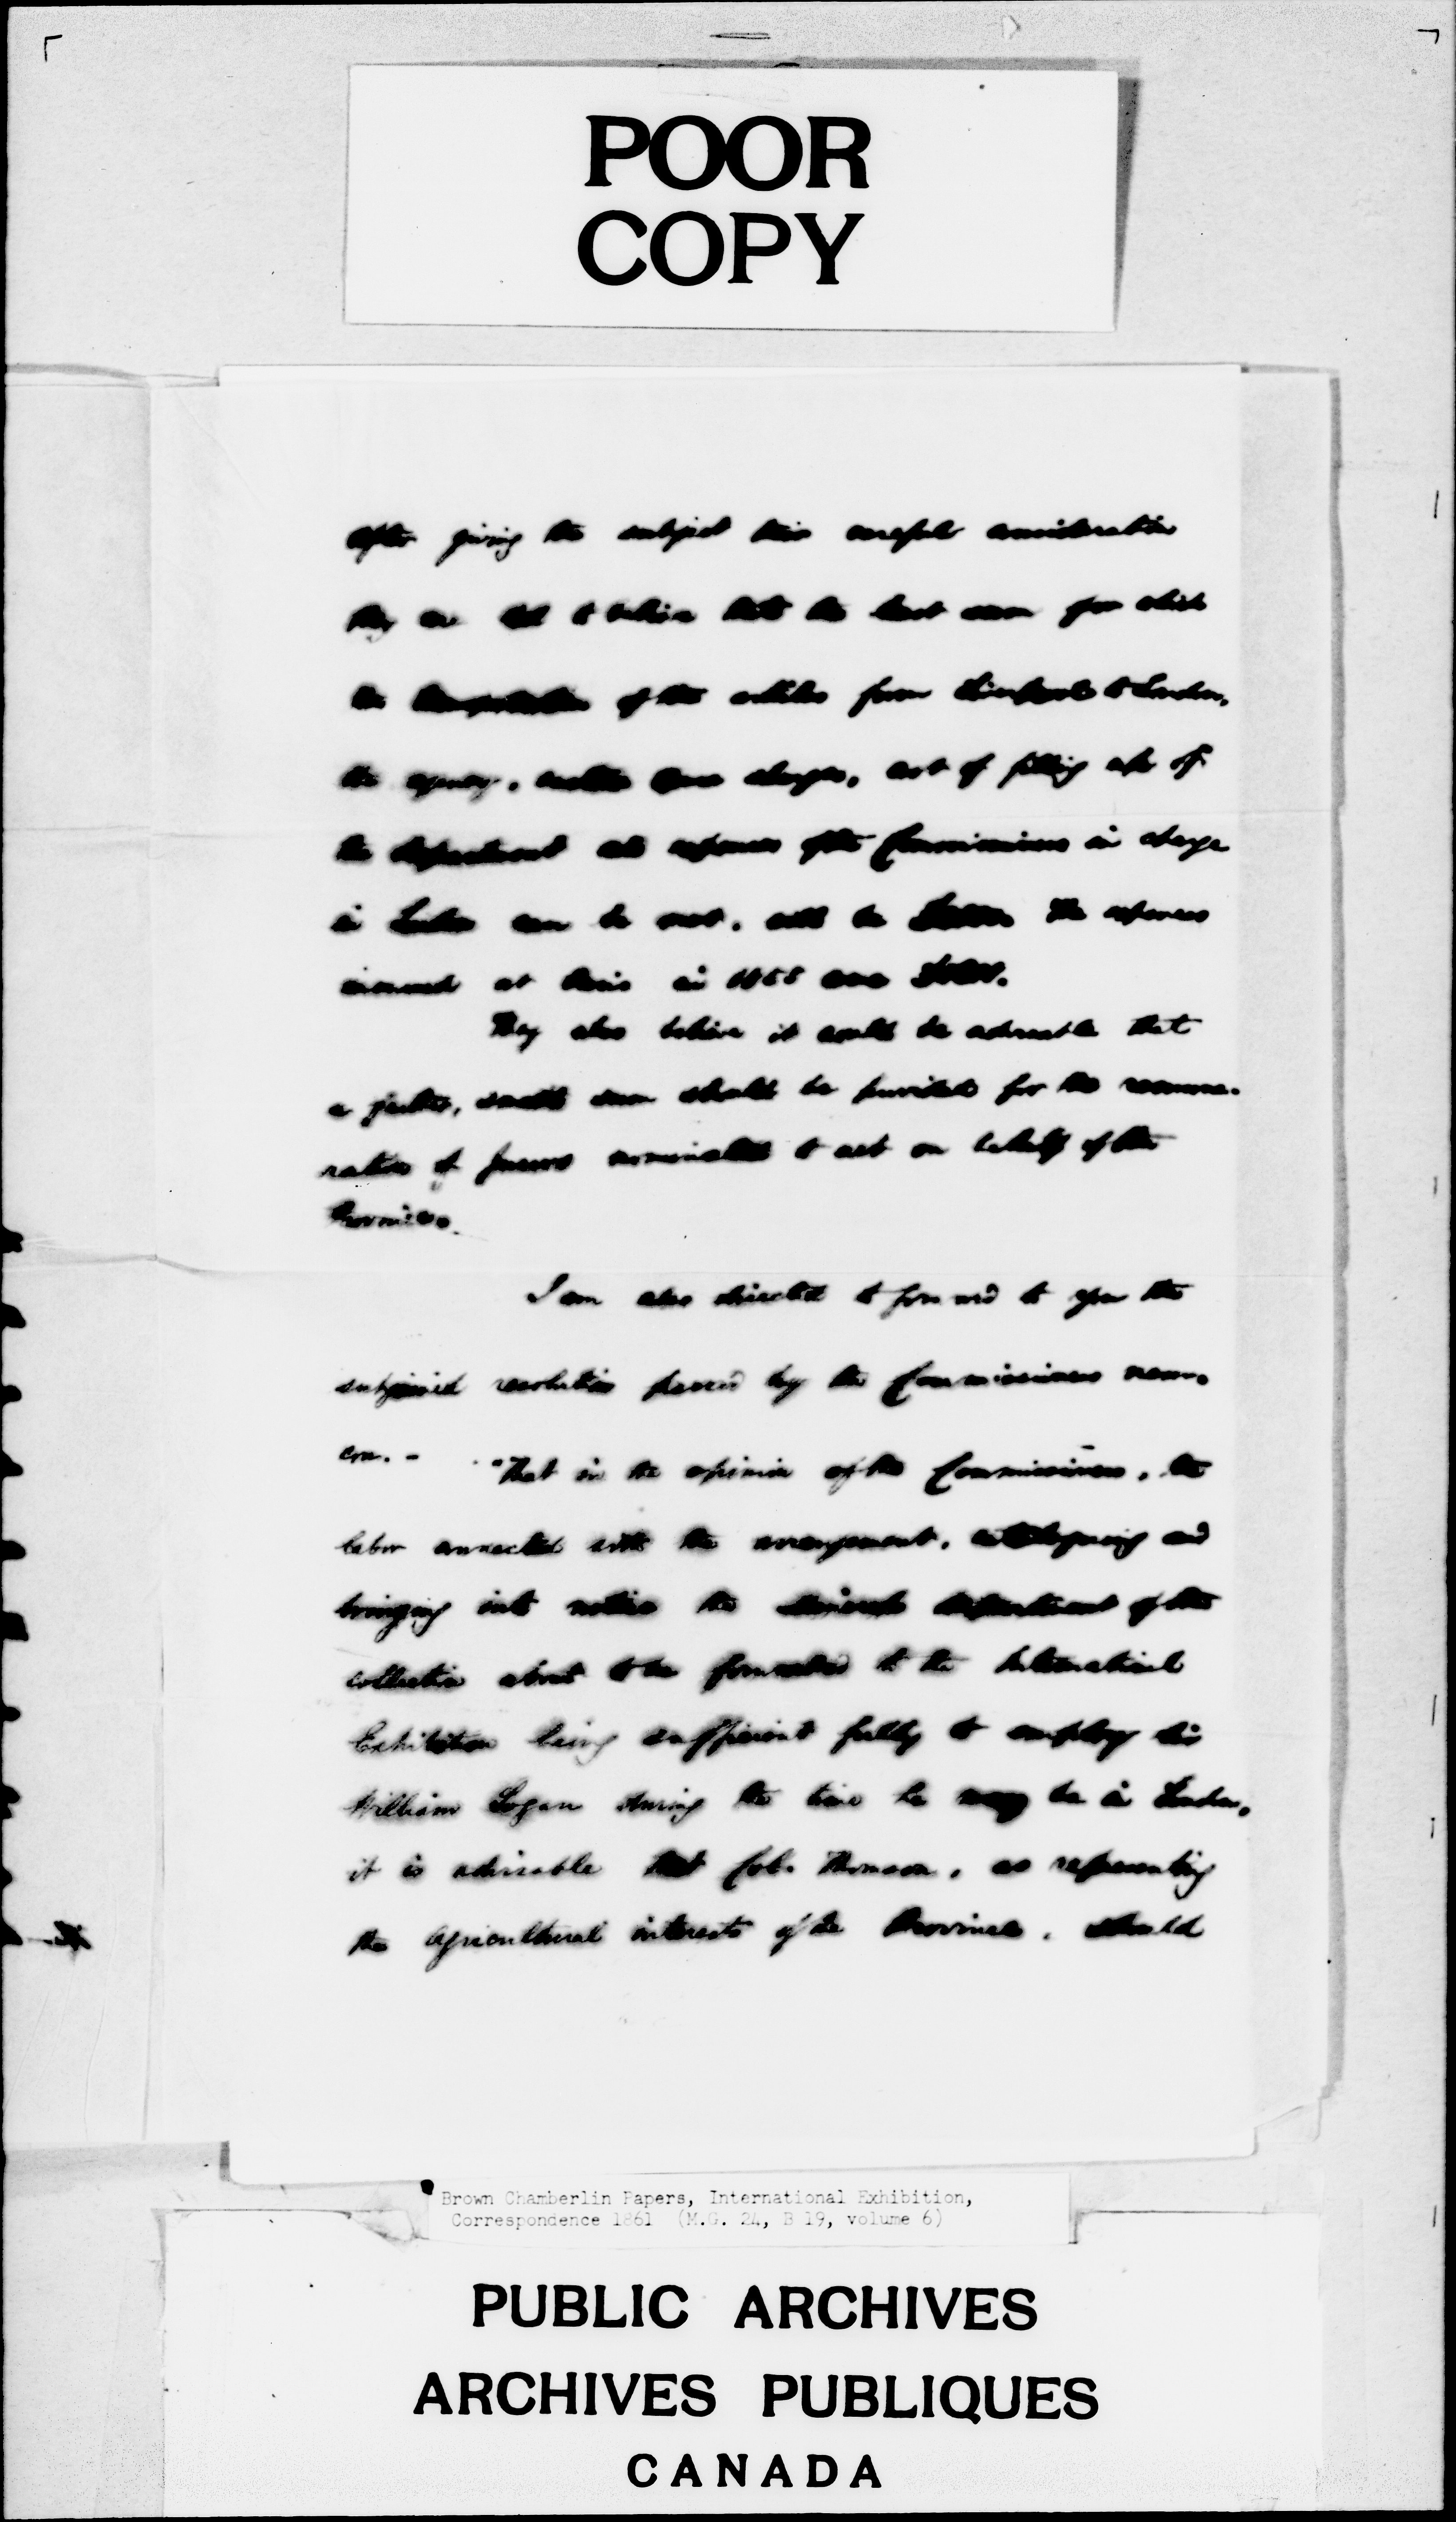 POOR
COPY
After giving the subject their careful consideration
they are led to believe that the least sum for which
the transportation of the articles from Liverpool to London,
the agency, customs charges, cost of fitting up of
the department and expenses of the Commissioners in charge
in London can be met, will be The expenses
incurred at Paris in 1855 were
They also believe it would be advisable that
a further, small sum should be provided for the remune-
ration of Jurors nominated to act on behalf of the
Province.
I am also directed to forward to you the
subjoined resolution passed by the Commissioners nem.
con. - "That in the opinion of the Commissioners, the
labor connected with the arrangement, cataloguing and
bringing into notice the mineral department of the
collection about to be forwarded to the International
Exhibition being sufficient fully to employ Sir
William Logan during the time he may be in London,
it is advisable that Col. Thomson, as representing
the agricultural interests of the Province, should
Brown Chamberlin Papers, International Exhibition,
Correspondence 1861 (M.G. 24, B 19, volume 6)
PUBLIC ARCHIVES
ARCHIVES PUBLIQUES
CANADA